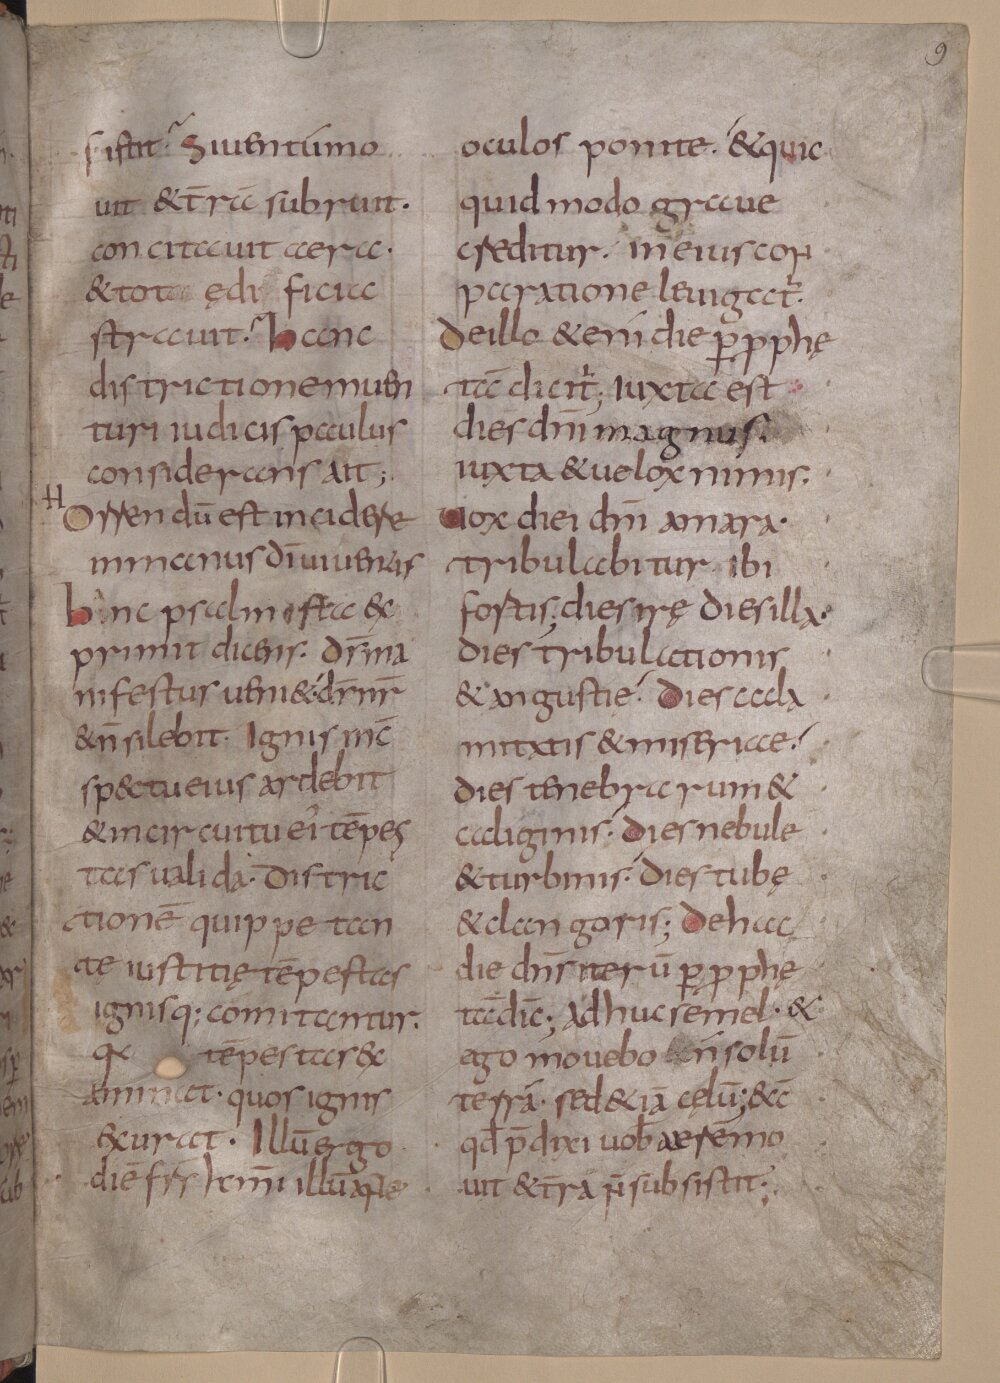 9
sistit. Si uentū mo
uit & t̄rā subruit.
concitauit aera.
& tot ędificia
strauit. hanc
districtionem uen
turi iudicis paulus
considerans ait;
Orrendū est incidere
in manus dī uiuentis
hinc psalmista &
primit dicens. ds̄ ma
nifestus ueni& ds̄ nr̄
& n̄ silebit. Ignis in c̄
sp&tu eius ardebit
& in circuitu ei' tēpes
tas ualida. Distric
tionē quippe tan
tę iustitię tēpestas
ignisq; comitantur.
tēpestas &
aminat. quos ignis
exurat. Illū ergo
diē frs̄ k̄mi illū ante
oculos ponite. & quic
quid modo graue
creditur. in eius com
paratione leuigat̄.
De illo & enī die ꝑ pphę
tā dicit̄; Iuxta est
dies dnī magnus.
iuxta & uelox nimis.
uox diei dnī amara.
tribulabitur ibi
fortis; dies irę dies illa.
dies tribulationis
& angustię. Dies cala
mitatis & miserice.
dies tenebrarum &
caliginis. Dies nebule
& turbinis. dies tubę
& clangoris; De hac
die dn̄s iterū ꝑ pphę
tā dic̄; Adhuc semel. &
ego mouebo n̄ solū
terrā. sed & iā cęlū; & c̄
qd̄ p̄dixi uob̄ aerē mo
uit & t̄ra n̄ subsistit;